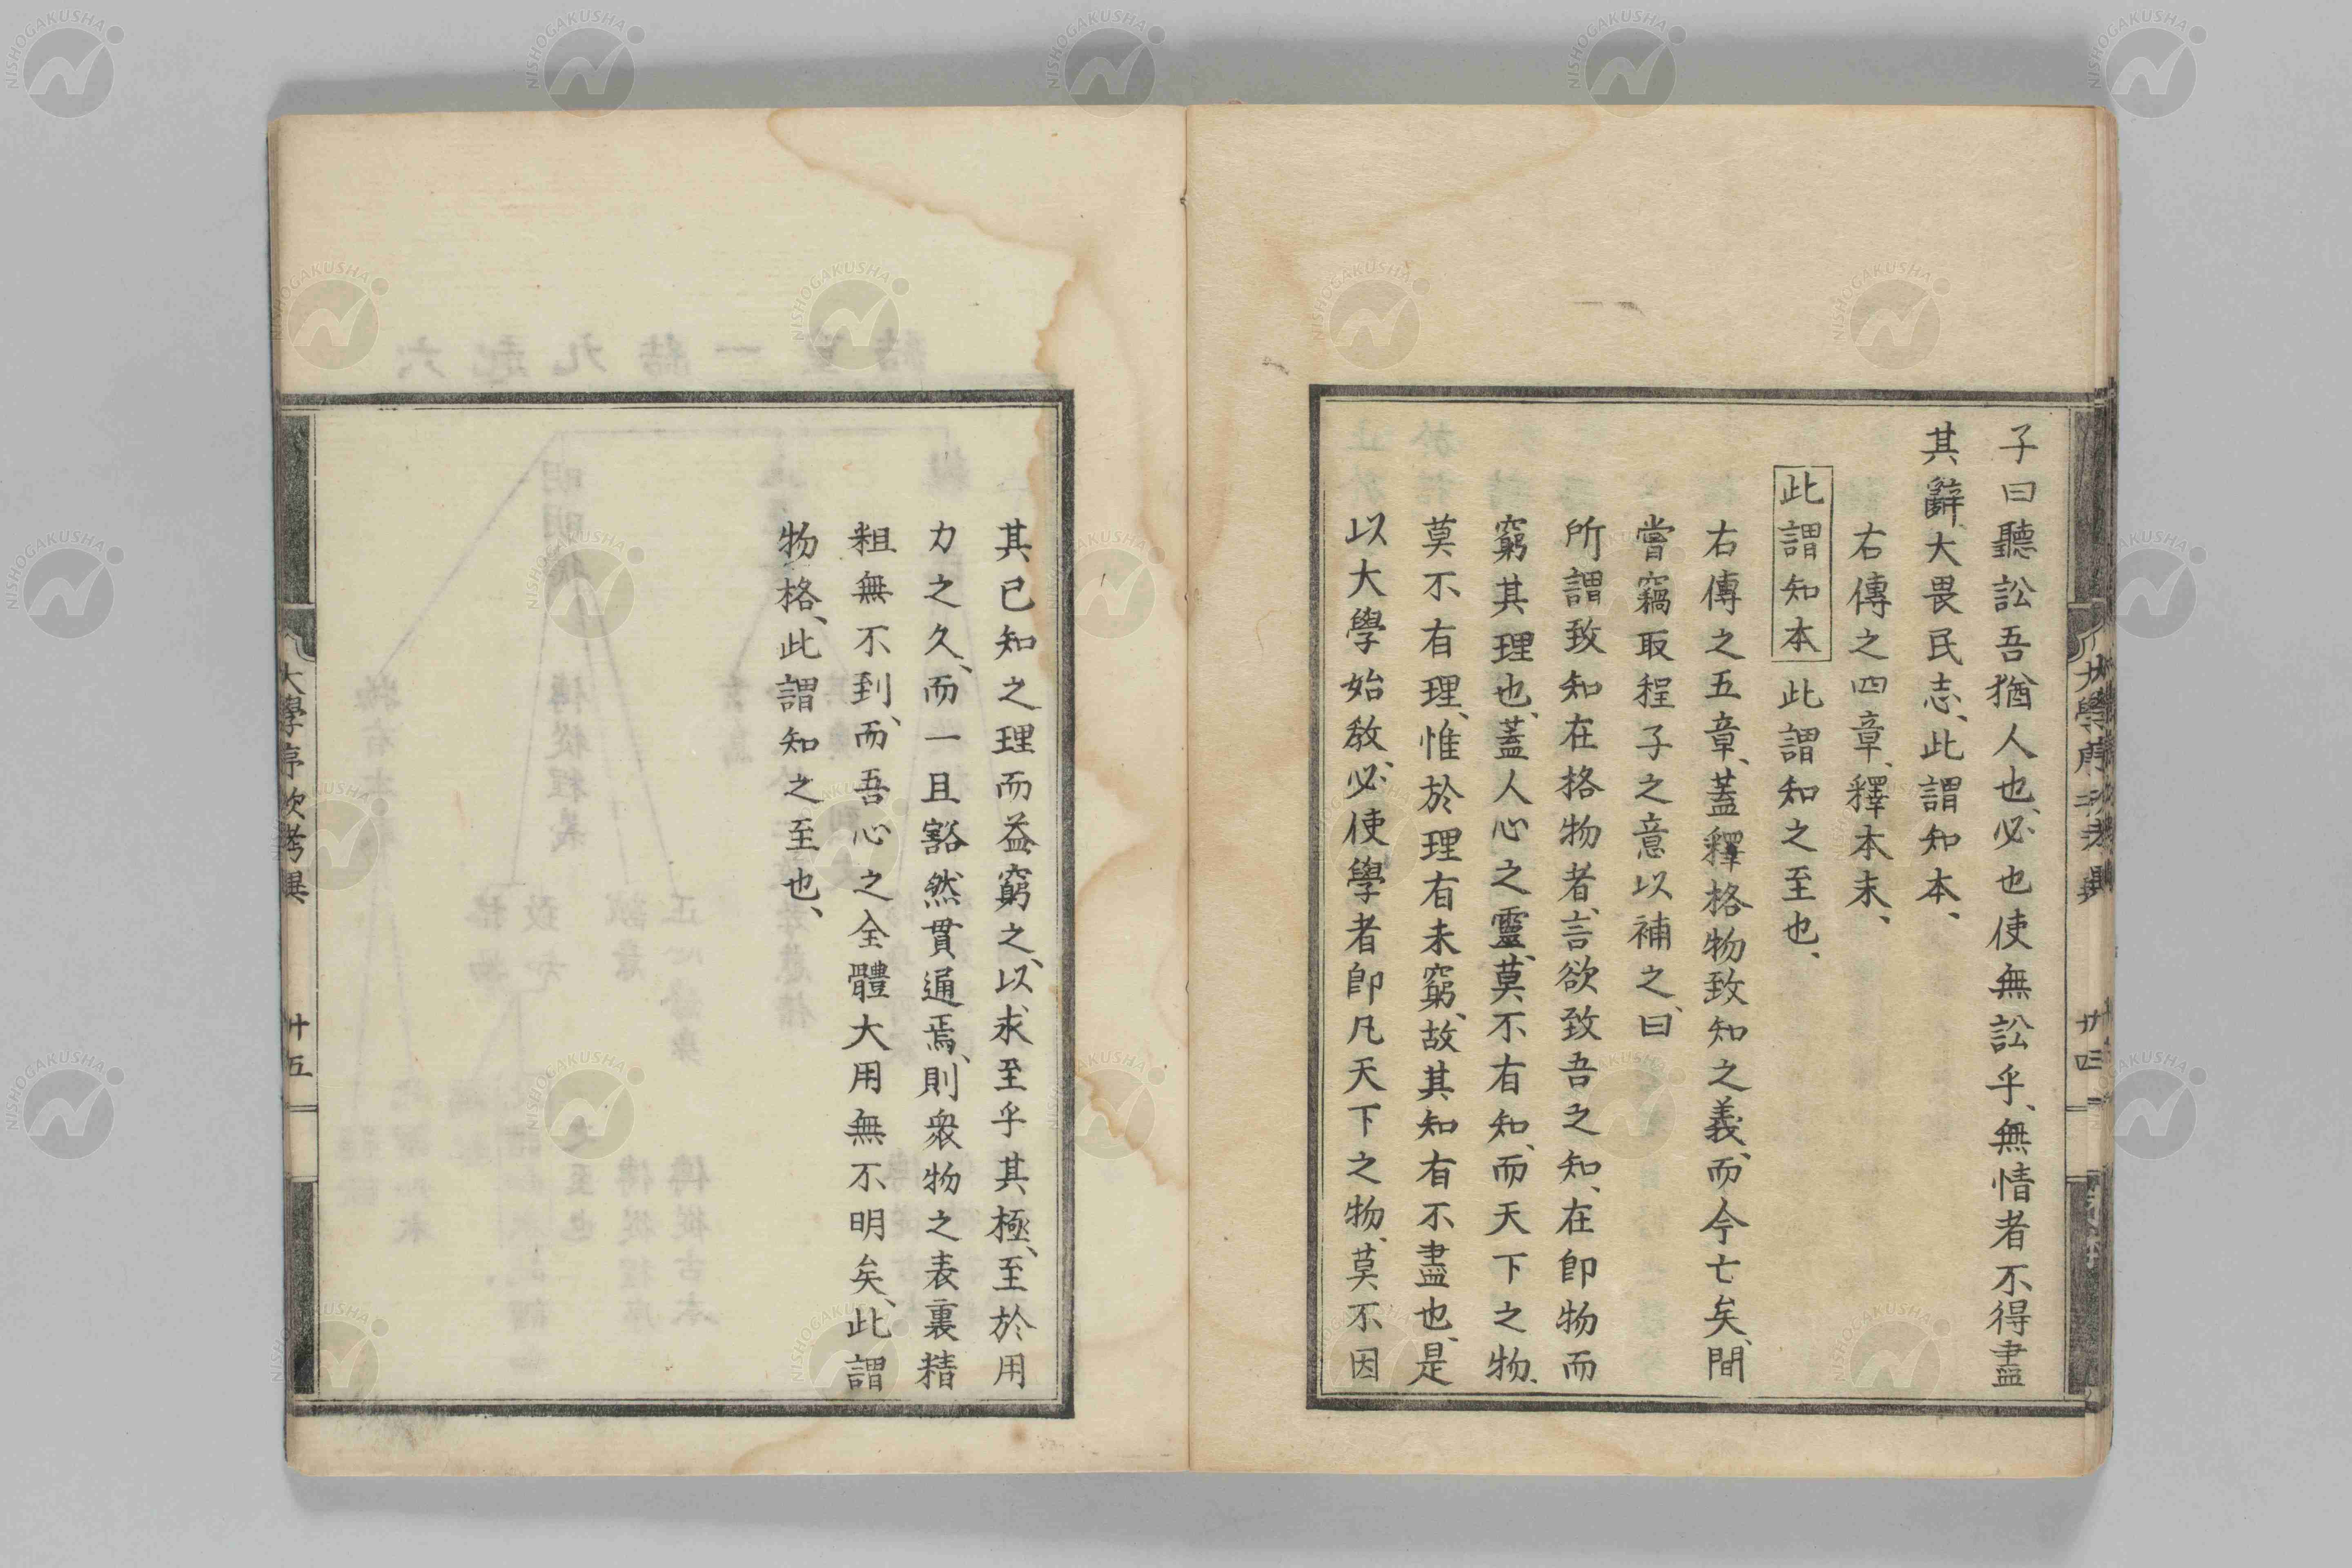 子曰聽訟吾猶人也、必也使無訟乎、無情者不得盡
其辭、大畏民志、此謂知本、
右傳之四章、釋本末、
此謂知本此謂知之至也、
右傳之五章、蓋釋格物致知之義、而今亡矣、間
嘗竊取程子之意以補之、曰
所謂致知在格物者、言欲致吾之知、在卽物而
窮其理也、蓋人心之靈、莫不有知、而天下之物、
莫不有理、惟於理有未窮、故其知有不盡也、是
以大學始敎、必使學者卽凡天下之物、莫不因
其已知之理而益窮之、以求至乎其極、至於用
力之久、而一旦豁然貫通焉、則衆物之表裏精
粗無不到、而吾心之全體大用無不明矣、此謂
物格、此謂知之至也、
大學序次考異
廿五
NISHOGAKUSHA